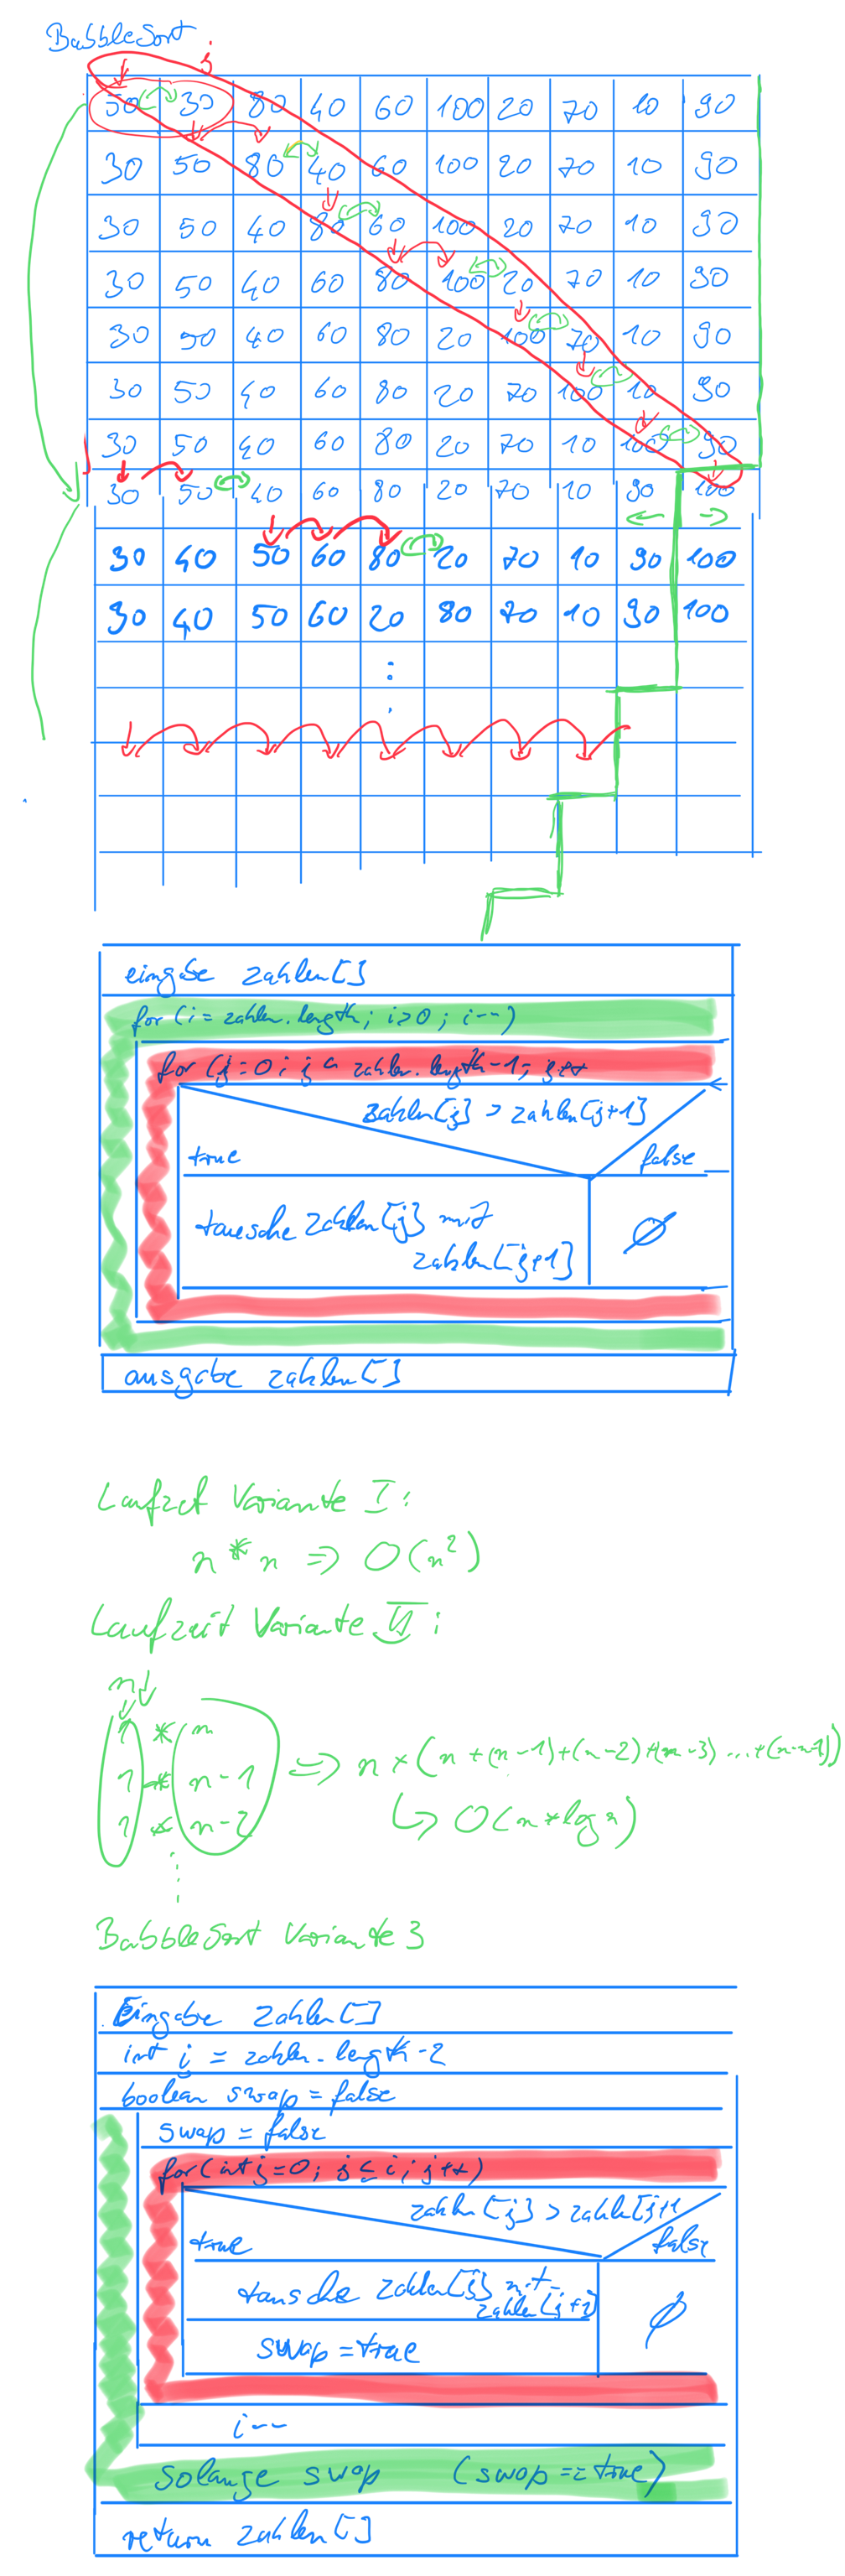 BubbleSort
j
50 30 80 40 60 100 20 70 10 90
30 50 80 40 60 100 20 70 10 90
30 50 40 80 60 100 20 70 10 90
30 50 40 60 80 100 20 70 10 90
30 50 40 60 80 20 100 70 10 90
30 50 40 60 80 20 70 100 10 90
30 50 40 60 80 20 70 10 100 90
30 50 40 60 80 20 70 10 90 100
30 40 50 60 80 20 70 10 90 100
30 40 50 60 20 80 70 10 90 100
eingabe zahlen[]
for (i = zahlen.length; i>0; i--)
for (j=0; j < zahlen.length-1; j++
zahlen[j] > zahlen[j+1]
true false
tausche zahlen[j] mit
zahlen[j+1]
Ø
ausgabe zahlen[]
Laufzeit Variante I:
n * n => O(n²)
Laufzeit Variante II:
n
1 * n
1 * n-1 => n * (n+(n-1)+(n-2)+(n-3) ...+(n-n-1))
1 * n-2 ↳ O(n*log n)
BubbleSort Variante 3
Eingabe zahlen[]
int i = zahlen.length-2
boolean swap = false
swap = false
for(int j=0; j ≤ i; j++)
zahlen[j] > zahlen[j+1
true false
tausche zahlen[j] mit
zahlen[j+1]
Ø
swap = true
i--
solange swap (swap == true)
return zahlen[]